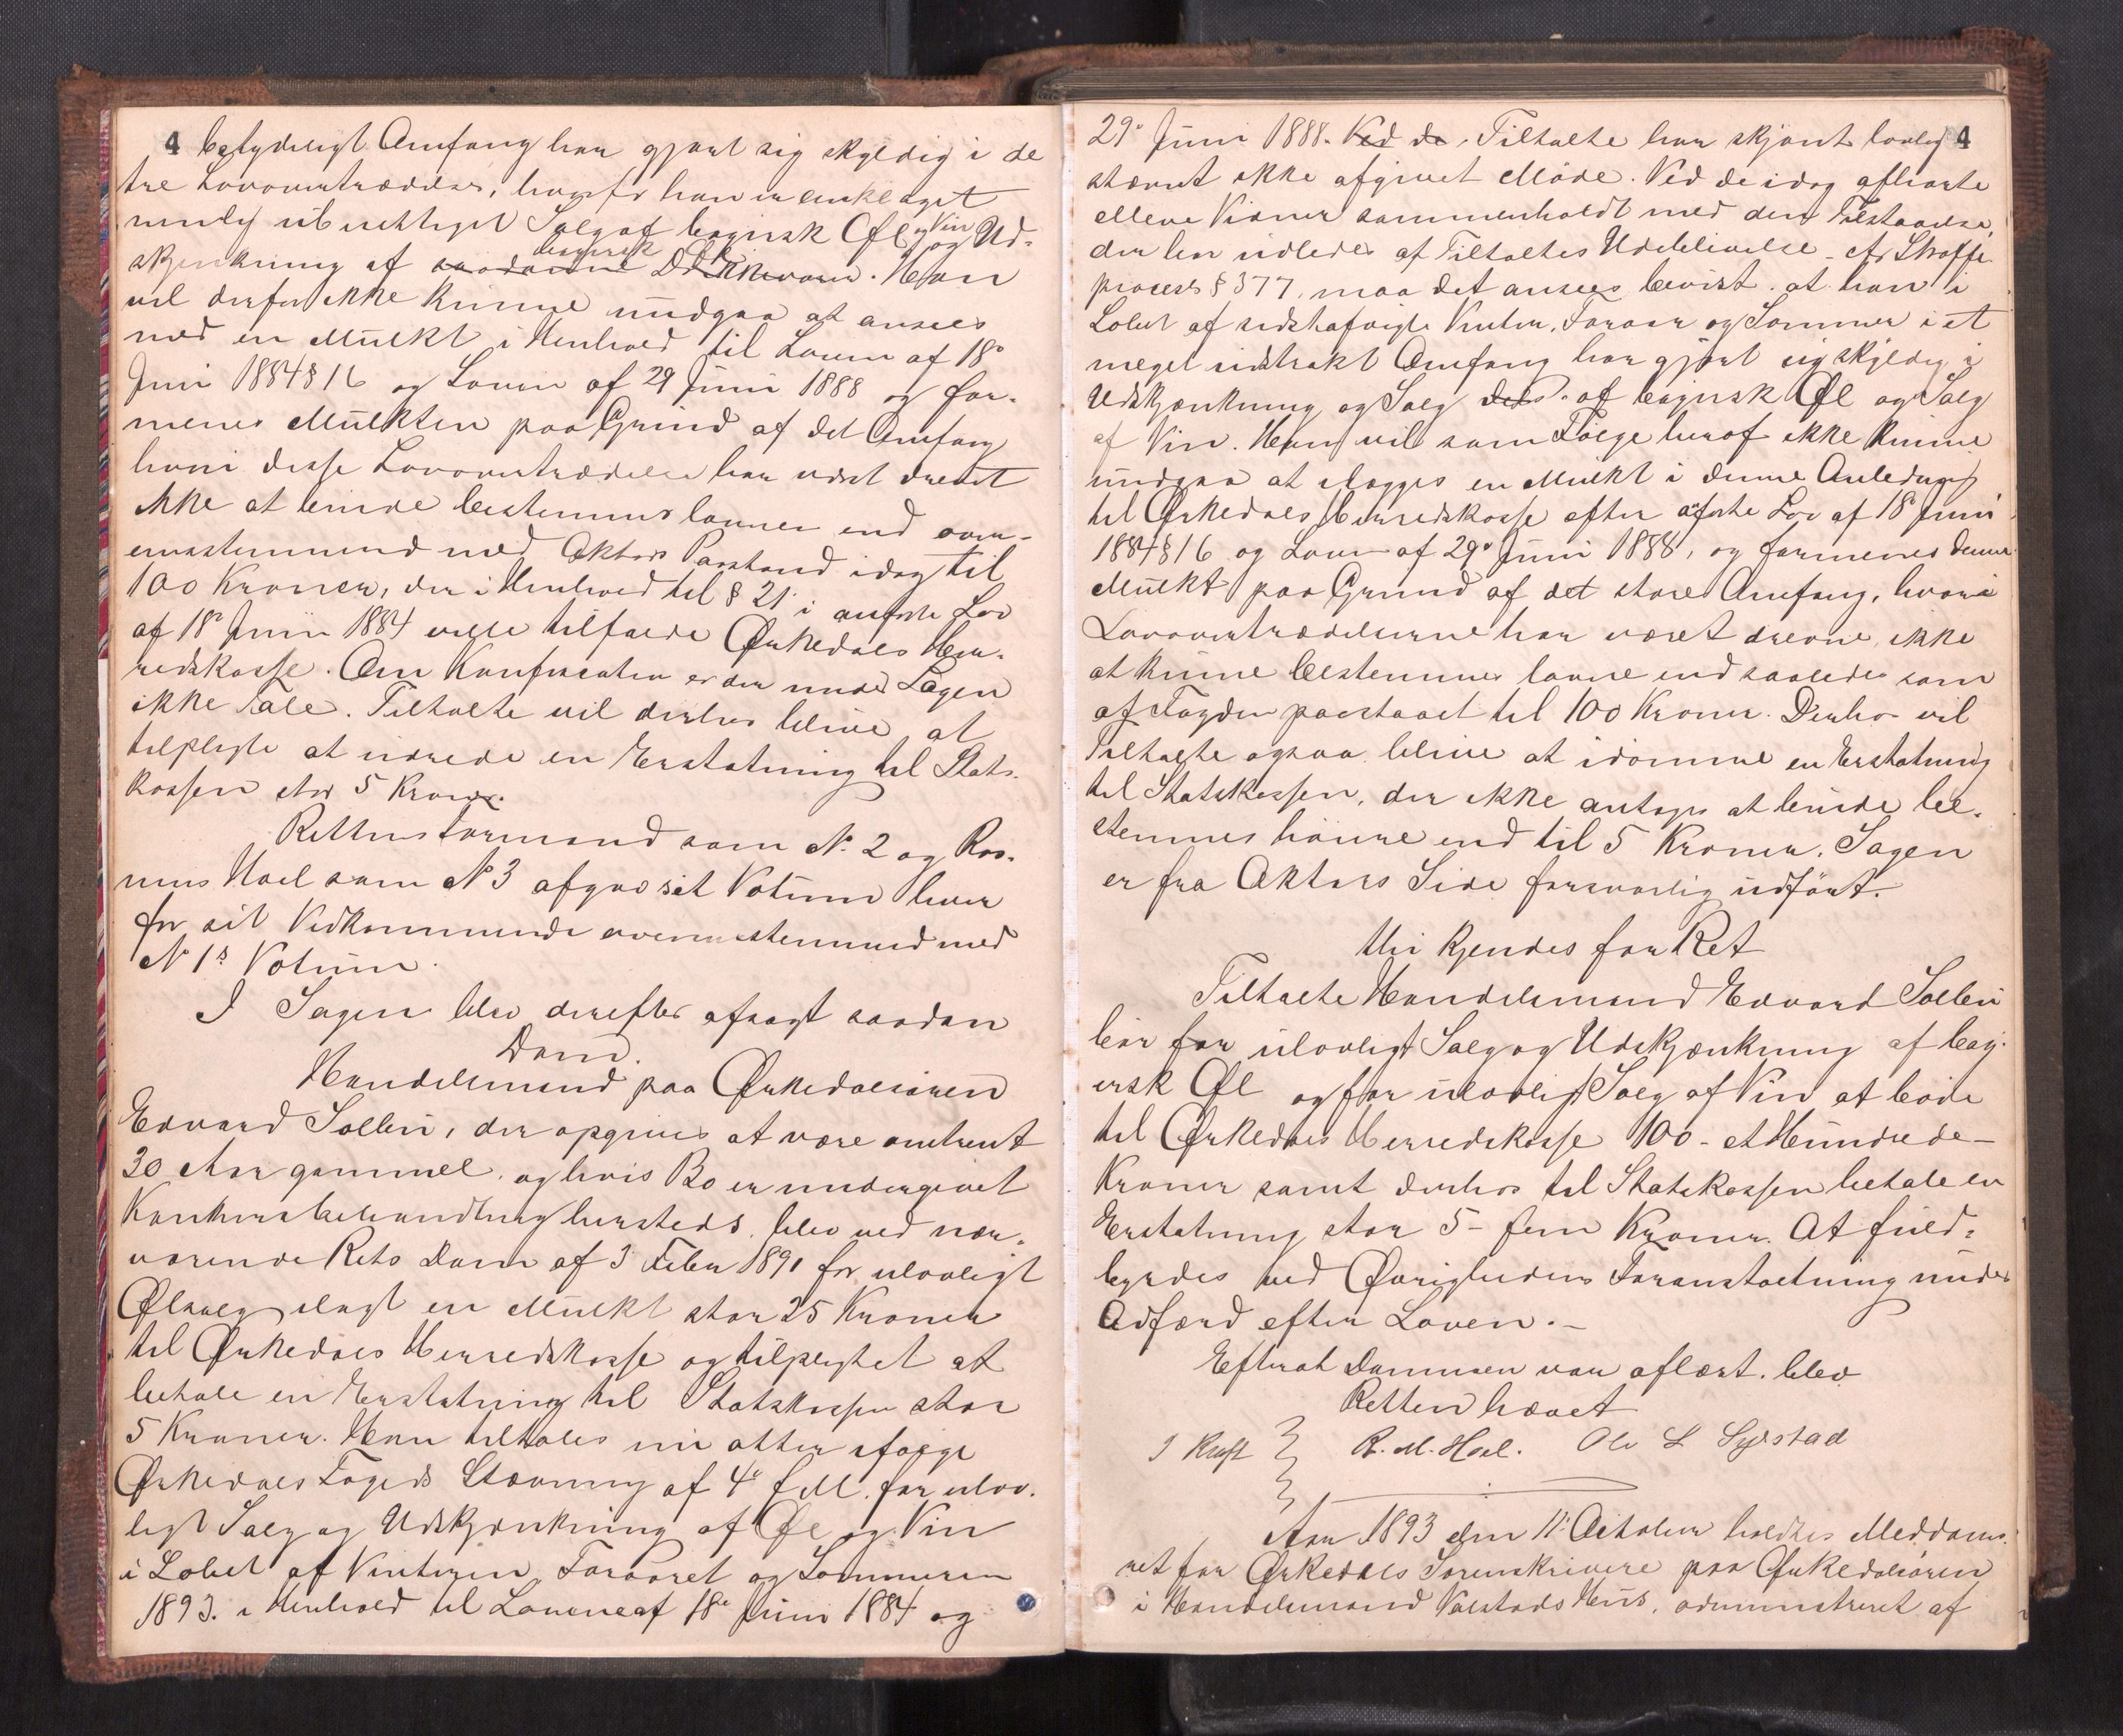 4 betydeligt Omfang har gjort sig skyldig i de
tre Lovovertrædelser, hvorfor han er anklaget
nemlig uberettiget Salg af bayersk Øl og Vin og Ud-
skjenkning af saadanne bayersk Drikkevarer. Han
vil derfor ikke kunne undgaa at ansees
med en Mulkt i Henhold til Loven af 18de
Juni 1884 § 16 og Loven af 29 Juni 1888 og for-
menes Mulkten paa Grund af det Omfang
hvori disse Lovovertrædelser har været drevet
ikke at burde bestemmes lavere end over-
ensstemmend med Aktors Paastand idag til
100 Kroner, der i Henhold til § 21 i anførte Lov
af 18de Juni 1884 ville tilfalde Ørkedals Her-
redskasse. Om Konfiscation er der under Sagen
ikke Tale. Tiltalte vil derhos blive at
tilpligte at udrede en Erstatning til Stats-
kassen stor 5 Kroner.
Rettens Formand som No 2 og Ras-
mus Hoel som No 3 afgav sit Votum hver
for sit Vedkommende overensstemmend med
No 1s Votum.
I Sagen blev derefter afsagt saadan
Dom.
Handelsmand paa Ørkedalsøren
Edvard Solbu, der opgives at være omtrent
30 Aar gammel og hvis Bo er undergivet
Konkursbehandling hersteds, blev ved nær-
værende Rets Dom af 3 Febr 1891 for ulovligt
Ølsalg ilagt en Mulkt stor 25 Kroner
til Ørkedals Herredskasse og tilpligtet at
betale en Erstatning til Statskassen stor
5 Kroner. Han tiltales nu atter ifølge
Ørkedals Fogeds Stævning af 4de f.M. for ulov-
ligt Salg og Udskjænkning af Øl og Vin
i Løbet af Vinteren, Foraaret og Sommeren
1893. i Henhold til Lovene af 18de Juni 1884 og
29de Juni 1888. Ved de Tiltalte har skjønt lovlig 4
stævnt ikke afgivet Møde. Ved de idag afhørte
elleve Vidner sammenholdt med den Tilstaaelse,
der kan udledes af Tiltaltes Udeblivelse - cfr Straffe
process § 377, maa det ansees bevist, at han i
Løbet af sidstafvigte Vinter, Foraar og Sommer i et
meget udstrakt Omfang har gjort sig skyldig i
Udskjænkning og Salg dels af bayersk Øl og Salg
af Vin. Han vil som Følge heraf ikke kunne
undgaa at ilægges en Mulkt i denne Anledning
til Ørkedals Herredskasse efter anførte Lov af 18de Juni
1884 § 16 og Loven af 29de Juni 1888, og formenes denne
Mulkt paa Grund af det store Omfang, hvori
Lovovertrædelserne har været drevne, ikke
at kunne bestemmes lavere end saaledes som
af Fogden paastaaet til 100 Kroner. Derhos vil
Tiltalte ogsaa blive at idømme en Erstatning
til Statskassen, der ikke antages at burde be-
stemmes høiere end til 5 Kroner. Sagen
er fra Aktors Side forsvarlig udført.
Thi kjendes for Ret
Tiltalte Handelsmand Edvard Solbu
bør for ulovligt Salg og Udskjænkning af bay-
ersk Øl og for ulovligt Salg af Vin at bøde
til Ørkedals Herredskasse 100 - et Hundrede -
Kroner samt derhos til Statskassen betale en
Erstatning stor 5 - fem Kroner. At fuld-
byrdes ved Øvrighedens Foranstaltning under
Adfærd efter Loven. -
Efterat Dommen var aflæst, blev
Retten hævet
R. M. Hoel. Ole L Systad
Aar 1893 den 11te Oktober holdtes Meddoms-
ret for Ørkedals Sorenskriveri paa Ørkedalsøren
i Handelsmand Volstads Hus, administreret af